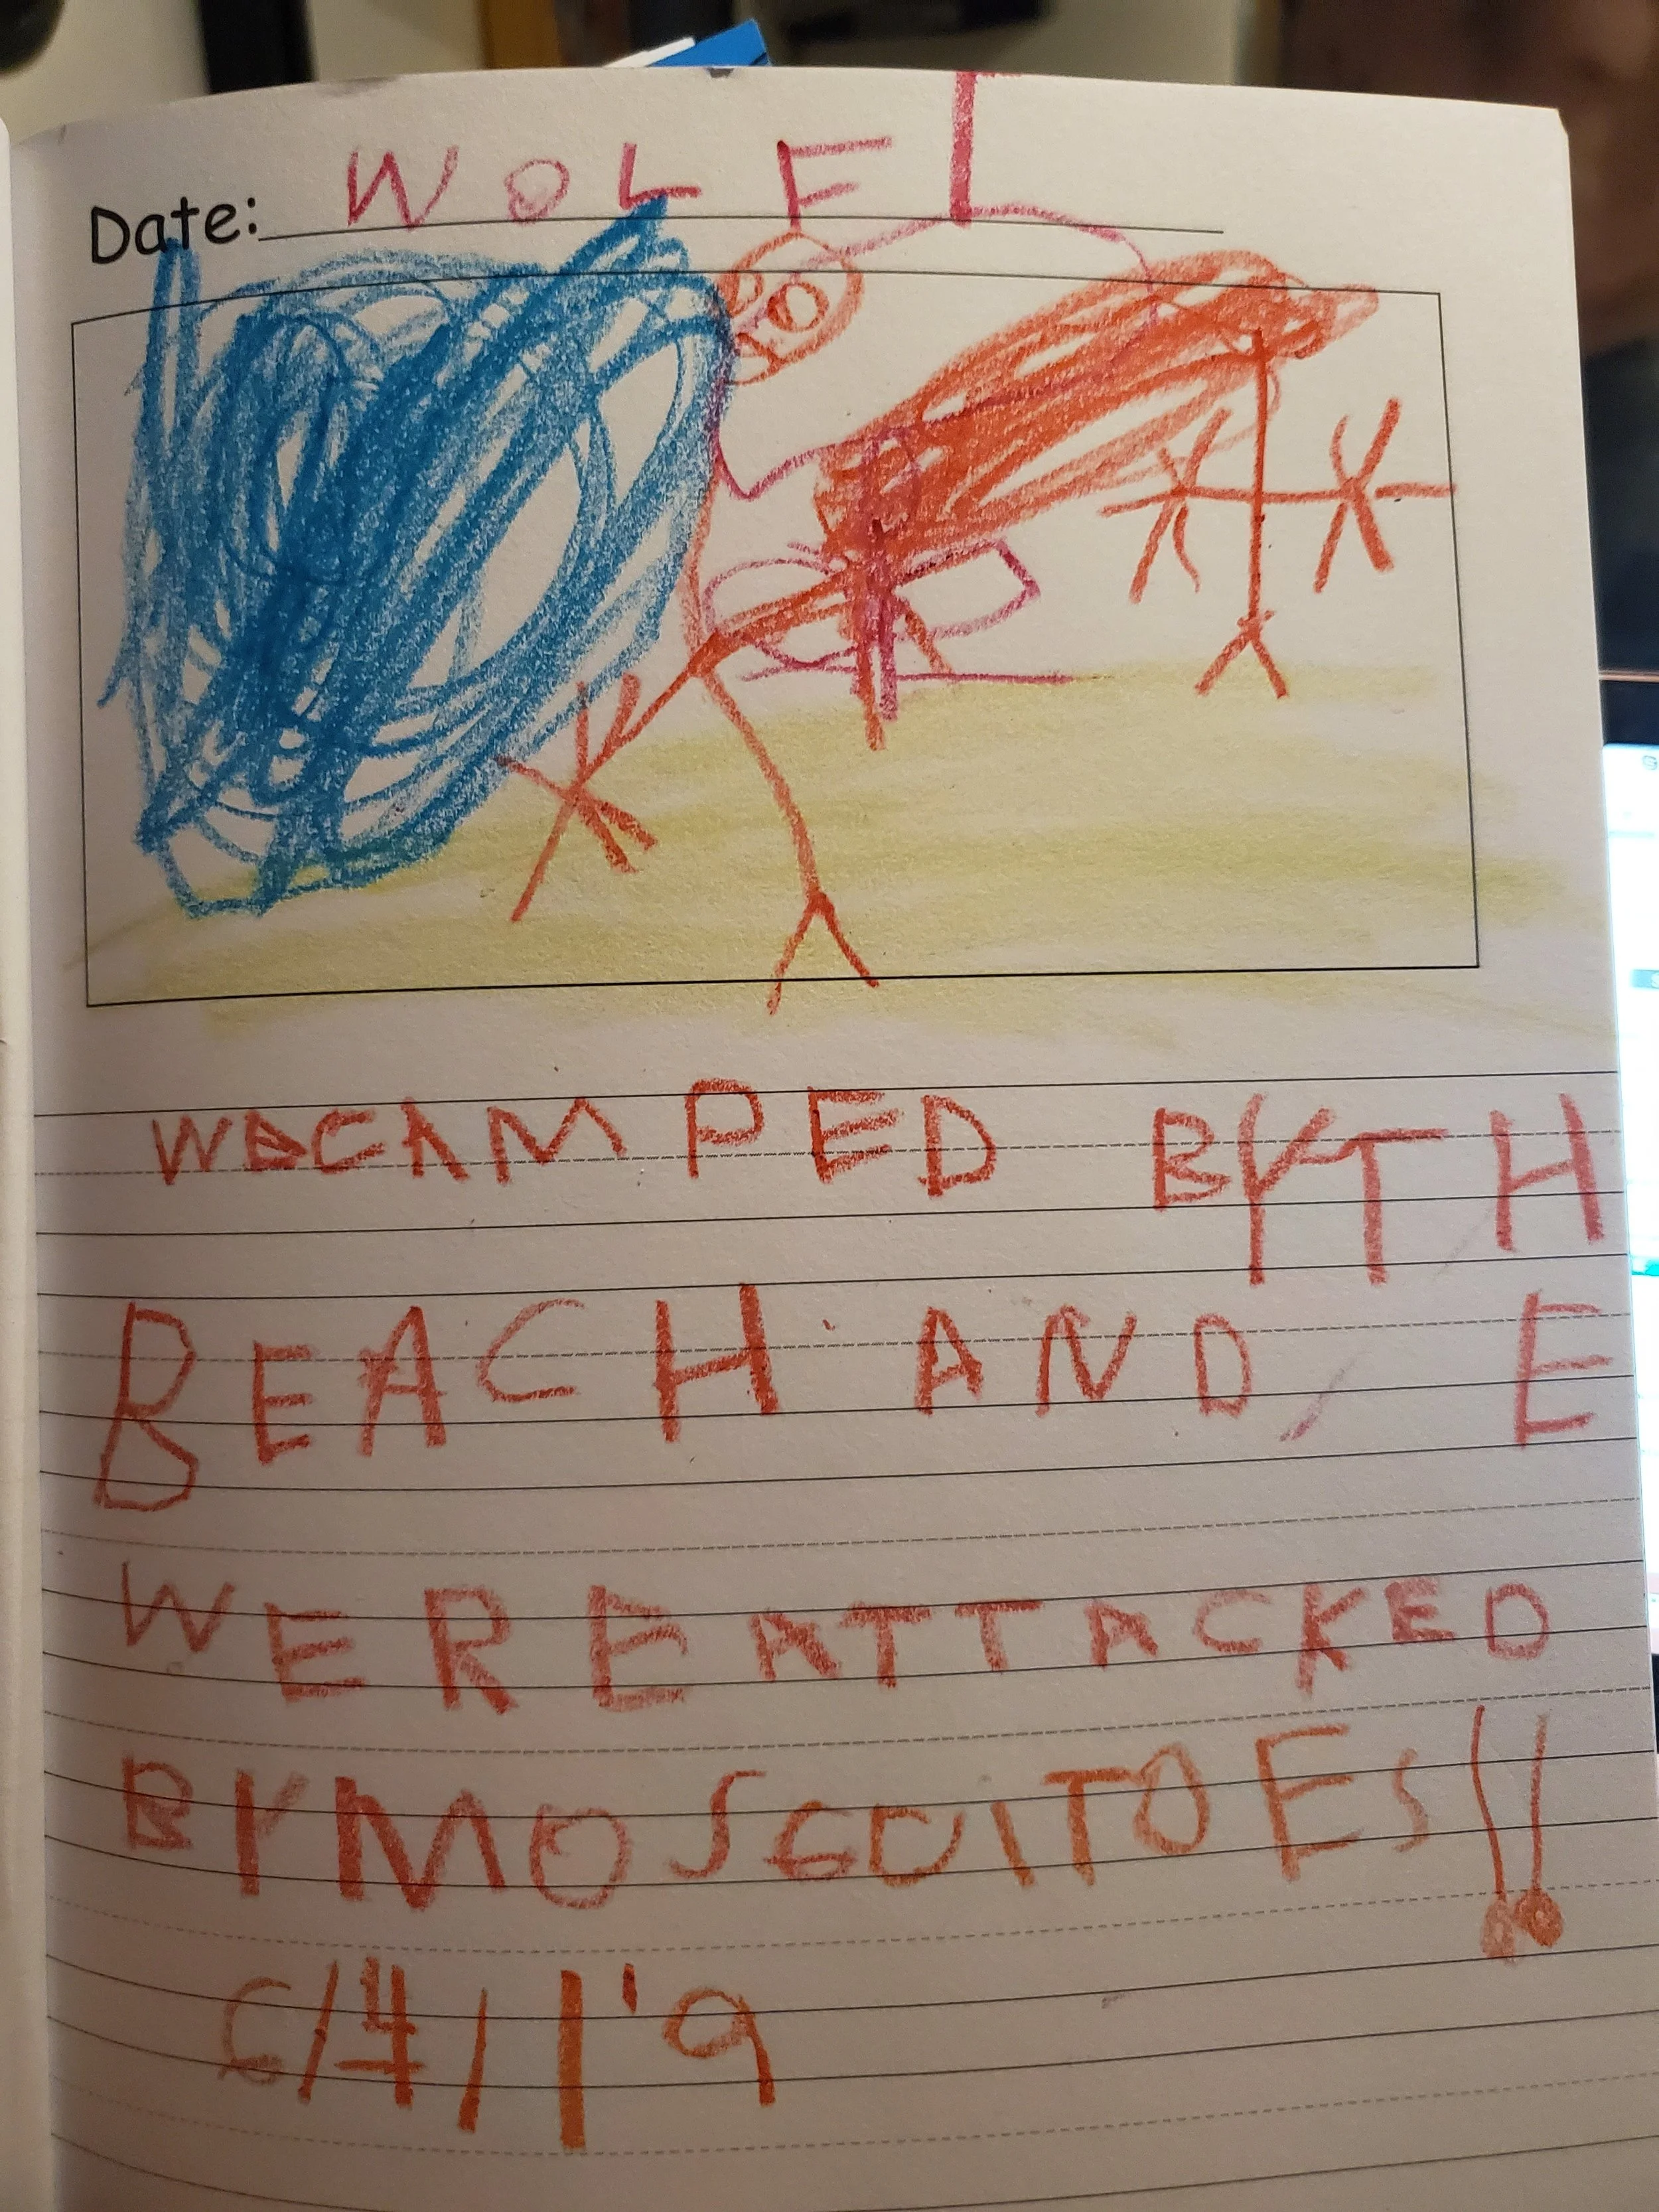 Date: WOLF L
WECAMPED BYTH
BEACH AND, E
WERE ATTACKED
BYMOSQUITOES!!
6/4/19